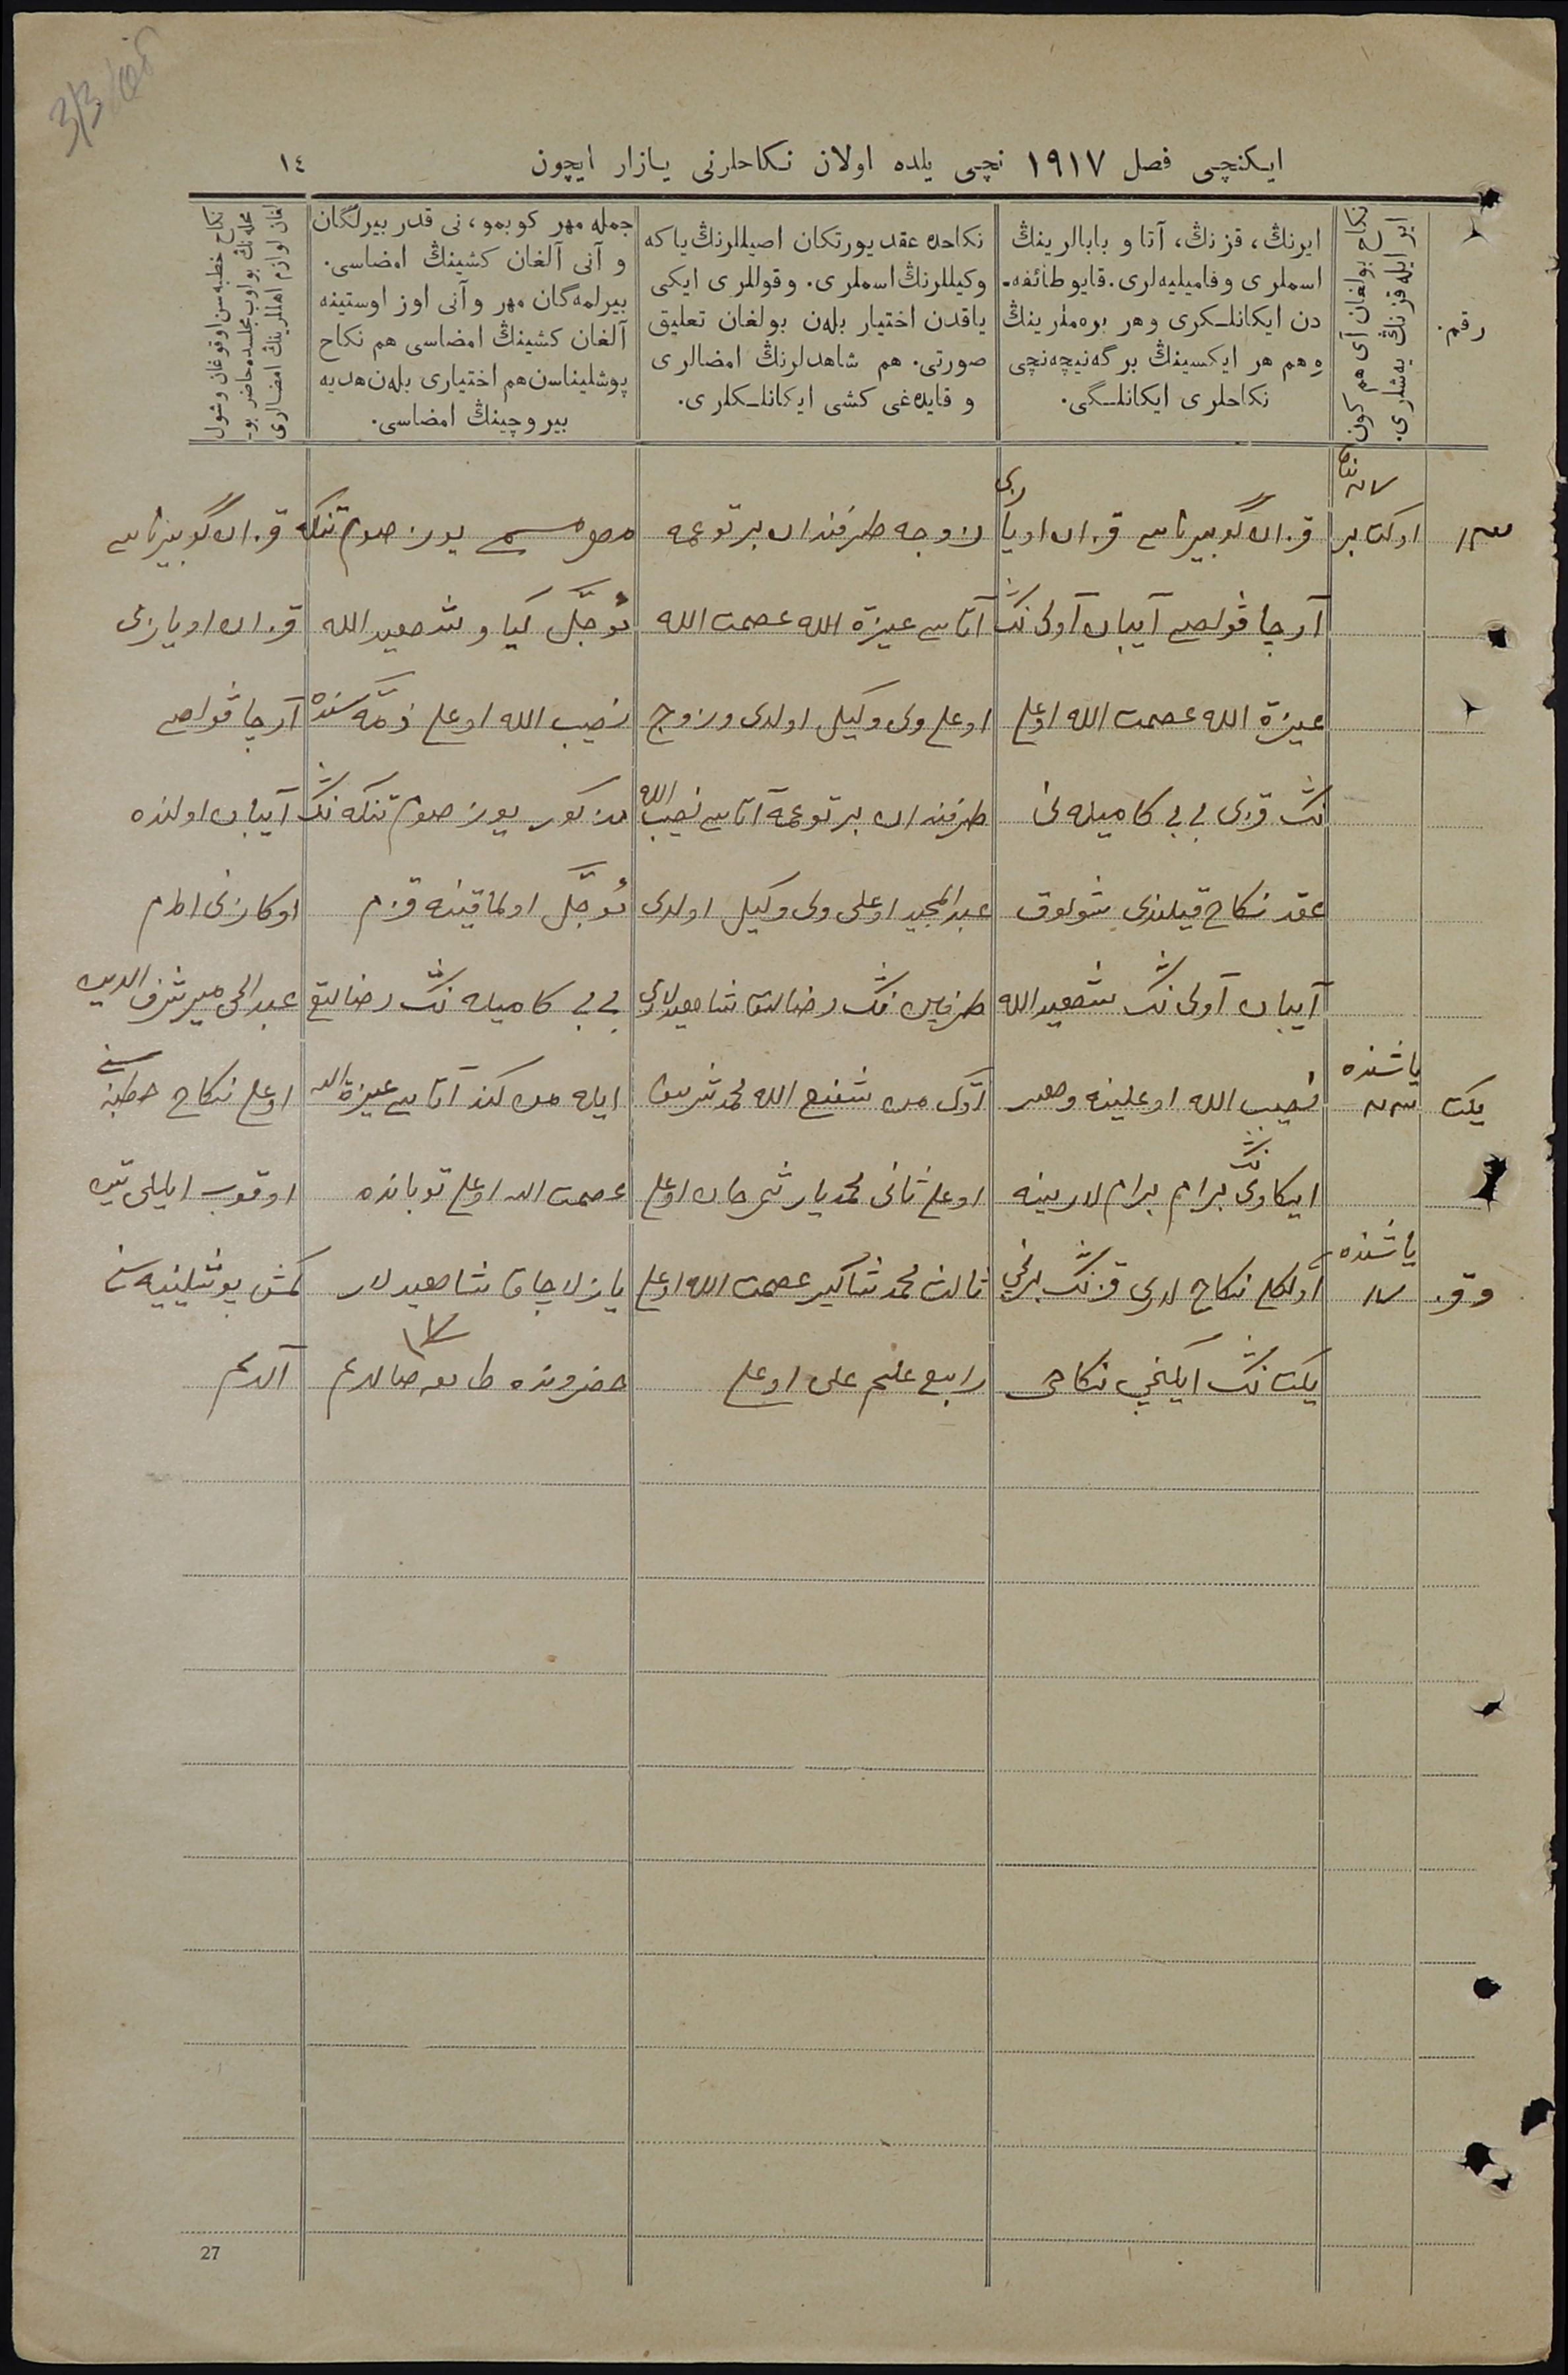 ایکنچی فصل ١٩١٧ نچی یلده اولان نکاحلرنی یازار ایچون
١٤
رقم.
نکاح بولغان آی هم کون
ایر ایله قزنڭ یه‌شلری.
ایرنڭ، قزنڭ، آتا و بابالرینڭ
اسملری و فامیلیه‌لری. قایو طائفه‌
دن ایکانلـکری و هر بره‌ملرینڭ
و هم هر ایکسینڭ برگه‌نیچه‌نچی
نکاحلری ایکانلـگی.
نکاحده عقد یورتکان اصیللرنڭ یاکه
وکیللرنڭ اسملری. و قوللری ایکی
یاقدن اختیار بله‌ن بولغان تعلیق
صورتی. هم شاهدلرنڭ امضالری
و قایده‌غی کشی ایکانلـکلری.
جمله مهر کوبمو، نی قدر بیرلگان
و آنی آلغان کشینڭ امضاسی.
بیرلمه‌گان مهر و آنی اوز اوستینه
آلغان کشینڭ امضاسی هم نکاح
پوشلیناسن هم اختیاری بله‌ن هدیه
بیروچینڭ امضاسی.
نکاح خطبه‌سن اوقوغان و شول
محله‌نڭ بو اوب مجلسده حاضر بو-
لغان لوازم اهللرینڭ امضالری
١٣
٢٧ نچی
اوکتابر
قزان گوبیرناسی قزان اویازی
آرچا ڤولصی آیبان آولی نڭ
عیزة الله عصمت الله اوغلی
نڭ قزی بی بی کامیله نی
عقد نکاح قیلندی شولوق
آیبان آولی نڭ شهید الله
نصیب الله اوغلینه و هر
ایکاوی نڭ برام برام لارینه
اولکی نکاح لاری قزنڭ برنچی
یکت نڭ ایکنچی نکاحی
یکت
٢٣
یاشنده
و قز
١٧
یاشنده
زوجه طرفندان بر توغمه
آتاسی عیزة الله عصمت الله
اوغلی ولی وکیل اولدی و زوج
طرفندان بر توغمه آتاسی نصیب الله
عبد المجید اوغلی ولی وکیل اولدی
طرفین نڭ رضالق شاهدلاری
اوّل من شفیع الله محمد شریف
اوغلی ثانی محمدیار شمرخان اوغلی
ثالث محمد شاکیر عصمت الله اوغلی
رابع علیم علی اوغلی
مهر مسمی یوز صوم تنکه
مؤجّل کیاو شهید الله
نصیب الله اوغلی ذمّه سنده
مذکور یوز صوم تنکه نڭ
مؤجّل اولماقینه قزم
بی بی کامیله نڭ رضالقی
ایله من کند آتاسی عیزة الله
عصمت الله اوغلی توبانده
یازلاچاق شاهدلار
حضرونده طامغه صالدم
قزان گوبیرناسی
قزان اویازی
آرچا ڤولصی
آیبان اولنده
اوکازنی امام
عبد الحی میرشرف الدین
اوغلی نکاح خطبه سنی
اوقوب ایللی تین
کمش پوشلینیه سنی
آلدم
27